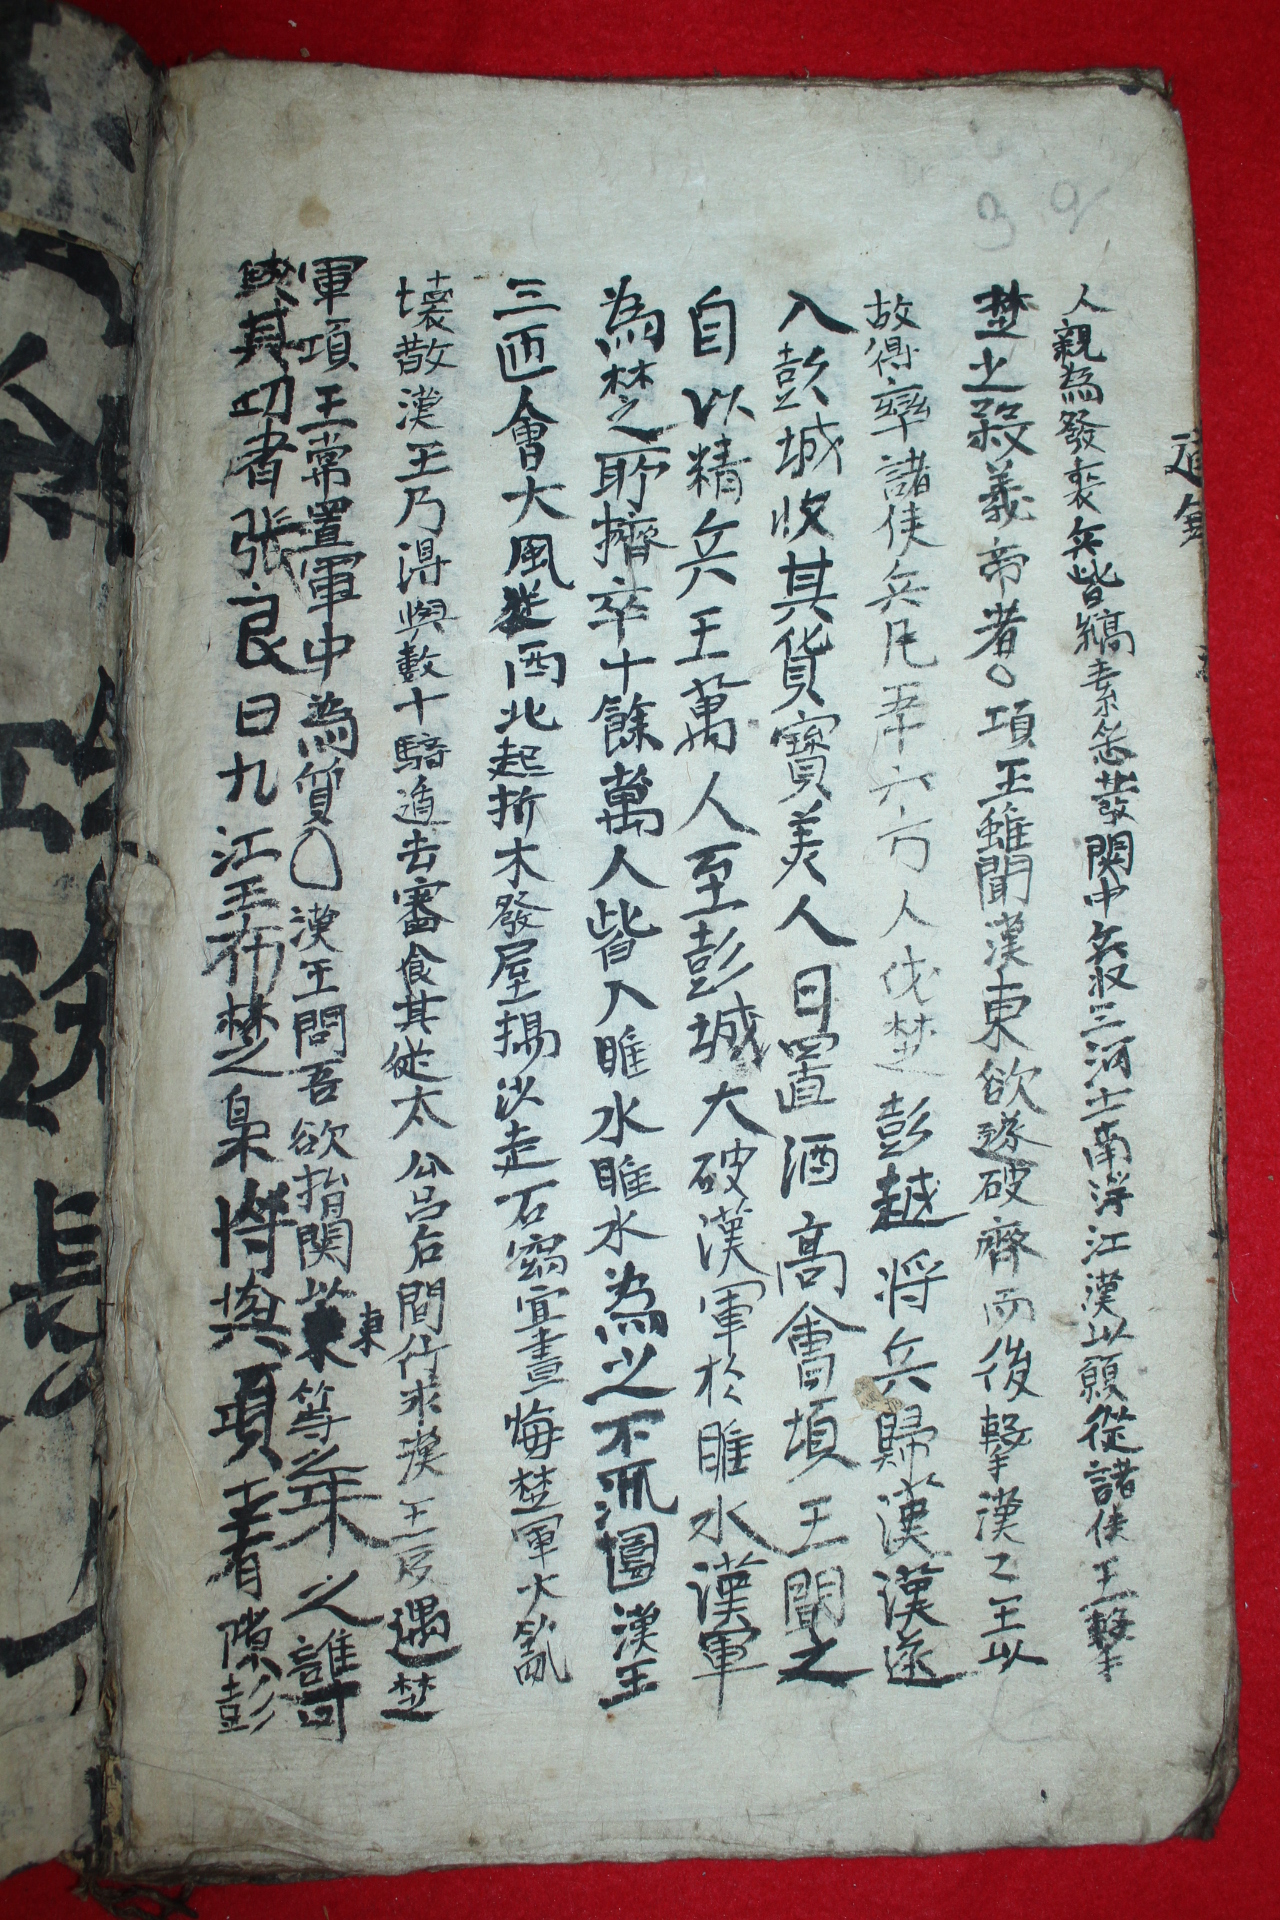 人親為發喪兵皆縞素悉發関中兵收三河士南浮江漢以願從諸侯王擊
楚之殺義帝者○項王雖聞漢東欲遂破齊而後擊漢〻王以
故得率諸侯兵凡五十六万人伐楚彭越将兵歸漢漢遂
入彭城收其貨寳美人日置酒高會項王聞之
自以精兵三萬人至彭城大破漢軍於睢水漢軍
為楚所擠卒十餘萬人皆入睢水睢水為之不流圍漢王
三匝會大風從西北起折木發屋揚沙走石窈冥晝晦楚軍大亂
壊散漢王乃得與數十騎遁去審食其從太公呂后間行求漢王反遇楚
軍項王常置軍中為質○漢王問吾欲捐関以東等弃之誰可
與共功者張良曰九江王布楚梟将與項王有隙彭